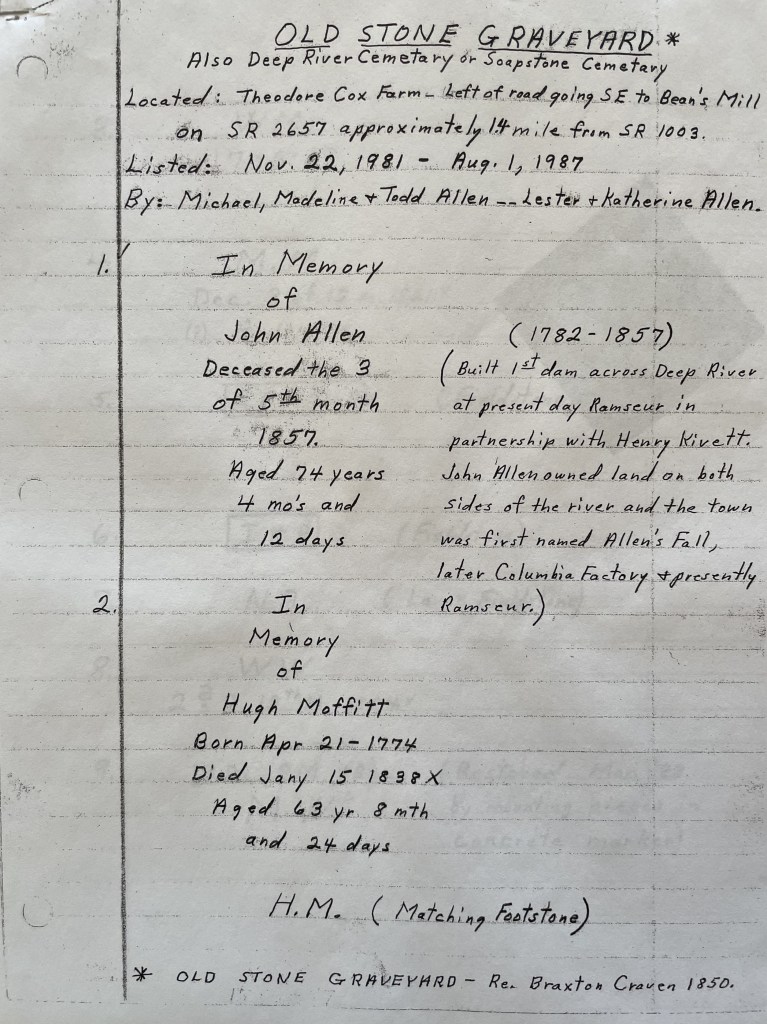 OLD STONE GRAVEYARD *
Also Deep River Cemetary or Soapstone Cemetary
Located: Theodore Cox Farm - Left of road going SE to Bean's Mill
on SR 2657 approximately 1.4 mile from SR 1003.
Listed: Nov. 22, 1981 - Aug. 1, 1987
By: Michael, Madeline + Todd Allen -- Lester + Katherine Allen.
1. In Memory
of
John Allen
Deceased the 3
of 5th month
1857.
Aged 74 years
4 mo's and
12 days
(1782-1857)
(Built 1st dam across Deep River
at present day Ramseur in
partnership with Henry Kivett.
John Allen owned land on both
sides of the river and the town
was first named Allen's Fall,
later Columbia Factory + presently
Ramseur.)
2. In
Memory
of
Hugh Moffitt
Born Apr 21-1774
Died Jany 15 1838 X
Aged 63 yr 8 mth
and 24 days
H.M. (Matching Footstone)
* OLD STONE GRAVEYARD - Re. Braxton Craven 1850.